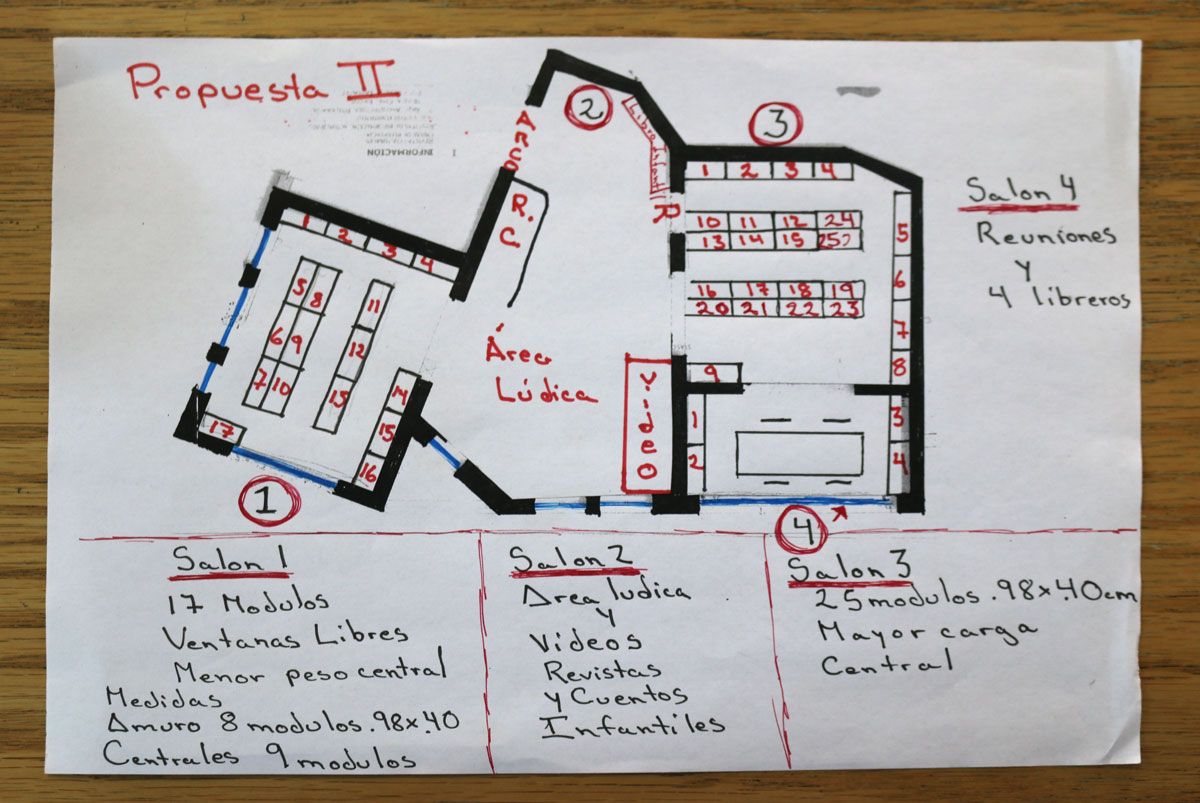 Propuesta II
I INFORMACIÓN
ARCO
2
Libro Infantil
R
R.
C.
3
1 2 3 4
10 11 12 24
13 14 15 25?
16 17 18 19
20 21 22 23
5
6
7
8
9
Salon 4
Reuniones
y
4 libreros
1 2 3 4
5 8
6 9
7 10
11
12
13
14
15
16
17
1
Área
Lúdica
Video
1
2
3
4
4
Salon 1
17 Modulos
Ventanas Libres
Menor peso central
Medidas
Amuro 8 modulos .98x.40
Centrales 9 modulos
Salon 2
Area ludica
y
Videos
Revistas
y Cuentos
Infantiles
Salon 3
25 modulos .98x.40cm
Mayor carga
Central